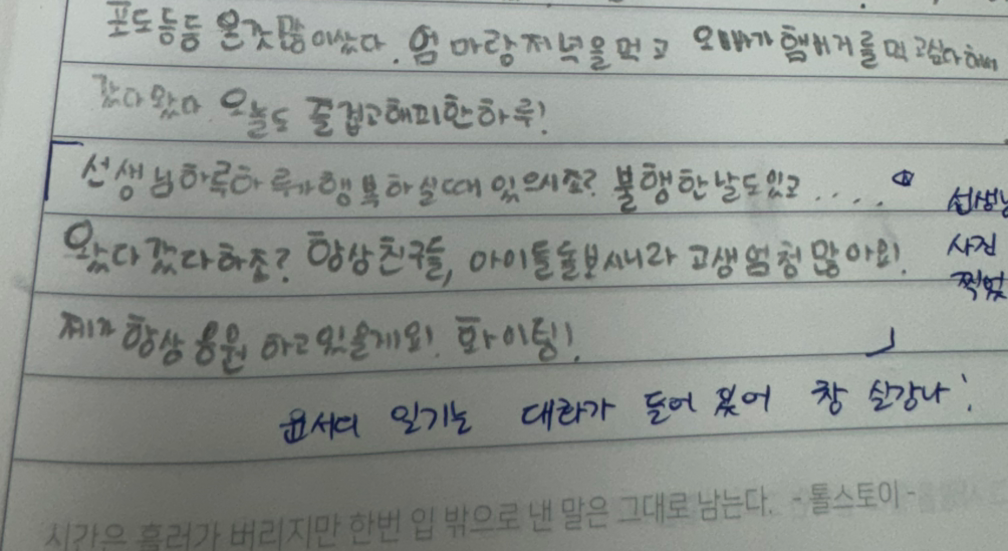 포도등등 온갓많이샀다. 엄마랑저녁을먹고 오빠가 햄버거를 먹고싶다해서
갔다왔다 오늘도 즐겁고해피한하루!
선생님하루하루가행복하실때있으시죠? 불행한날도있고.....
왔다갔다하죠? 항상친구들, 아이들돌보시니라 고생엄청많아요!
제가 항상 응원 하고있을게요! 화이팅!
선생님
사진
찍었
윤서의 일기는 대화가 들어 있어 참 실감나!
시간은 흘러가 버리지만 한번 입 밖으로 낸 말은 그대로 남는다. -톨스토이-